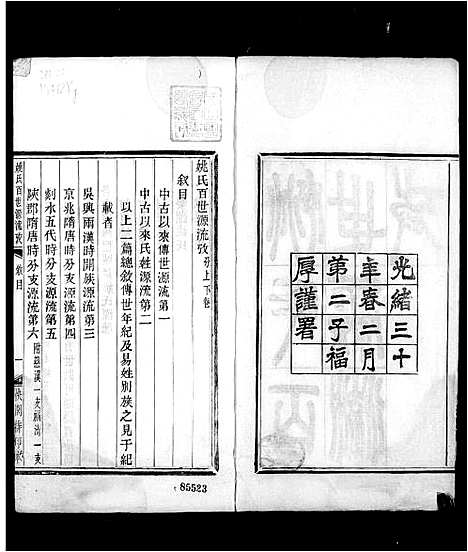 光緒三十
年春二月
第二子福
厚謹署
姚氏百世源流攷分上下卷
敘目
中古以來傳世源流第一
中古以來氏姓源流第二
以上二篇總敘傳世年紀及易姓別族之見于紀
載者
吳興兩漢時開族源流第三
京兆隋唐時分支源流第四
剡水五代時分支源流第五
陝郡隋唐時分支源流第六 附慈溪一支福清一支
姚氏百世源流攷
敘目
一
85523